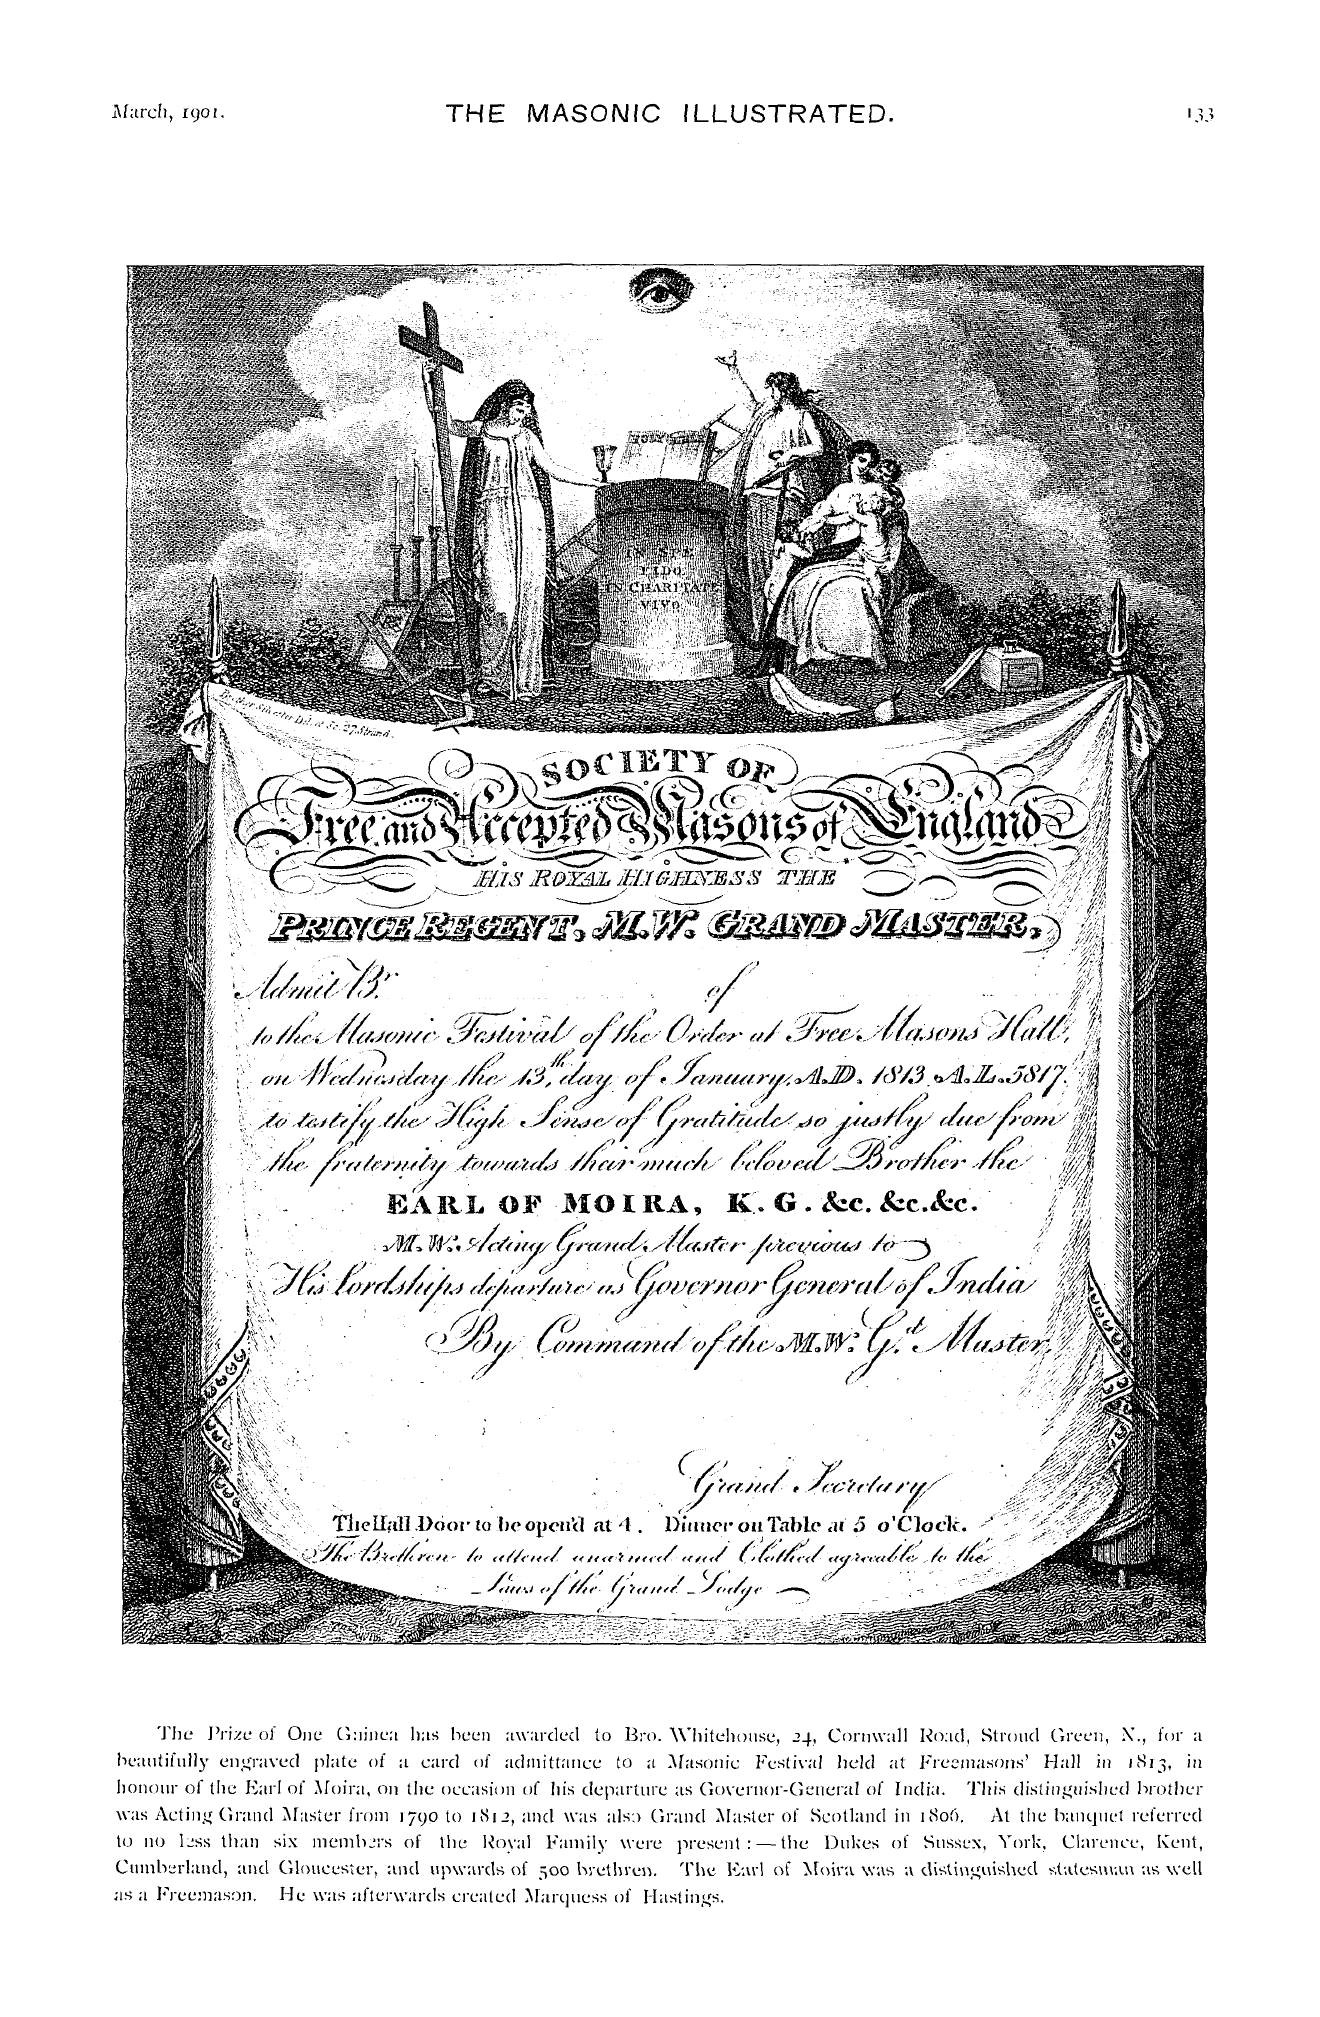 March, 1901.
THE MASONIC ILLUSTRATED.
133
IN SPE
FIDO
IN CHARITATE
VIVO
27 Strand.
SOCIETY OF
Free and Accepted Masons of England
HIS ROYAL HIGHNESS THE
PRINCE REGENT, M.W. GRAND MASTER,
Admit Br. of
to the Masonic Festival of the Order at Free Masons Hall,
on Wednesday the 13th, day of January, A.D. 1813 A.L. 5817.
to testify the High Sense of Gratitude so justly due from
the fraternity towards their much beloved Brother the
EARL OF MOIRA, K. G. &c. &c. &c.
M. W. Acting Grand Master previous to
His Lordships departure as Governor General of India
By Command of the M.W. Gd. Master,
Grand Secretary
The Hall Door to be open'd at 4. Dinner on Table at 5 o'Clock.
The Brethren to attend unarmed and Clothed agreeable to the
Laws of the Grand Lodge
The Prize of One Guinea has been awarded to Bro. Whitehouse, 24, Cornwall Road, Stroud Green, N., for a
beautifully engraved plate of a card of admittance to a Masonic Festival held at Freemasons' Hall in 1813, in
honour of the Earl of Moira, on the occasion of his departure as Governor-General of India. This distinguished brother
was Acting Grand Master from 1790 to 1812, and was also Grand Master of Scotland in 1806. At the banquet referred
to no less than six members of the Royal Family were present:—the Dukes of Sussex, York, Clarence, Kent,
Cumberland, and Gloucester, and upwards of 500 brethren. The Earl of Moira was a distinguished statesman as well
as a Freemason. He was afterwards created Marquess of Hastings.